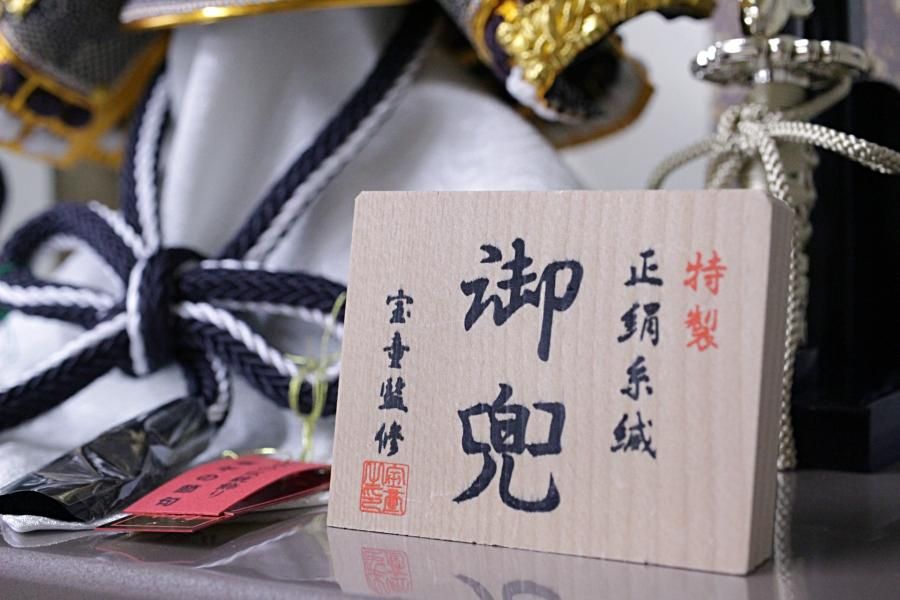 特製
正絹糸縅
御兜
宝童監修